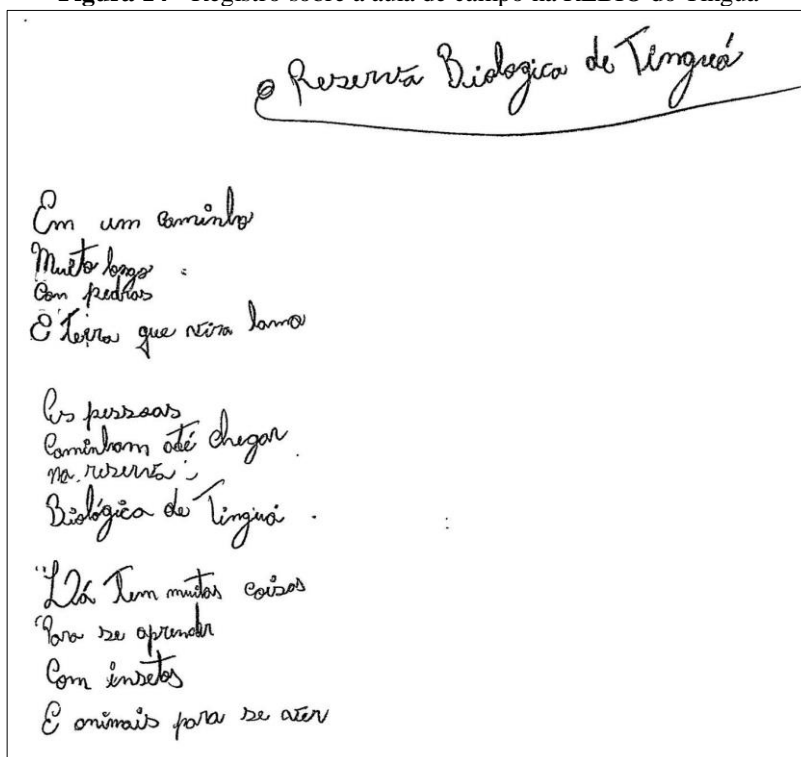 Figura 14 - Registro sobre a aula de campo na REBIO do Tinguá
Reserva Biologica de Tinguá
Em um caminho
Muito longo
Com pedras
E terra que vira lama
As pessoas
Caminham até chegar
na reserva
Biológica de Tinguá.
Lá tem muitas coisas
Para se aprender
Com insetos
E animais para se ater